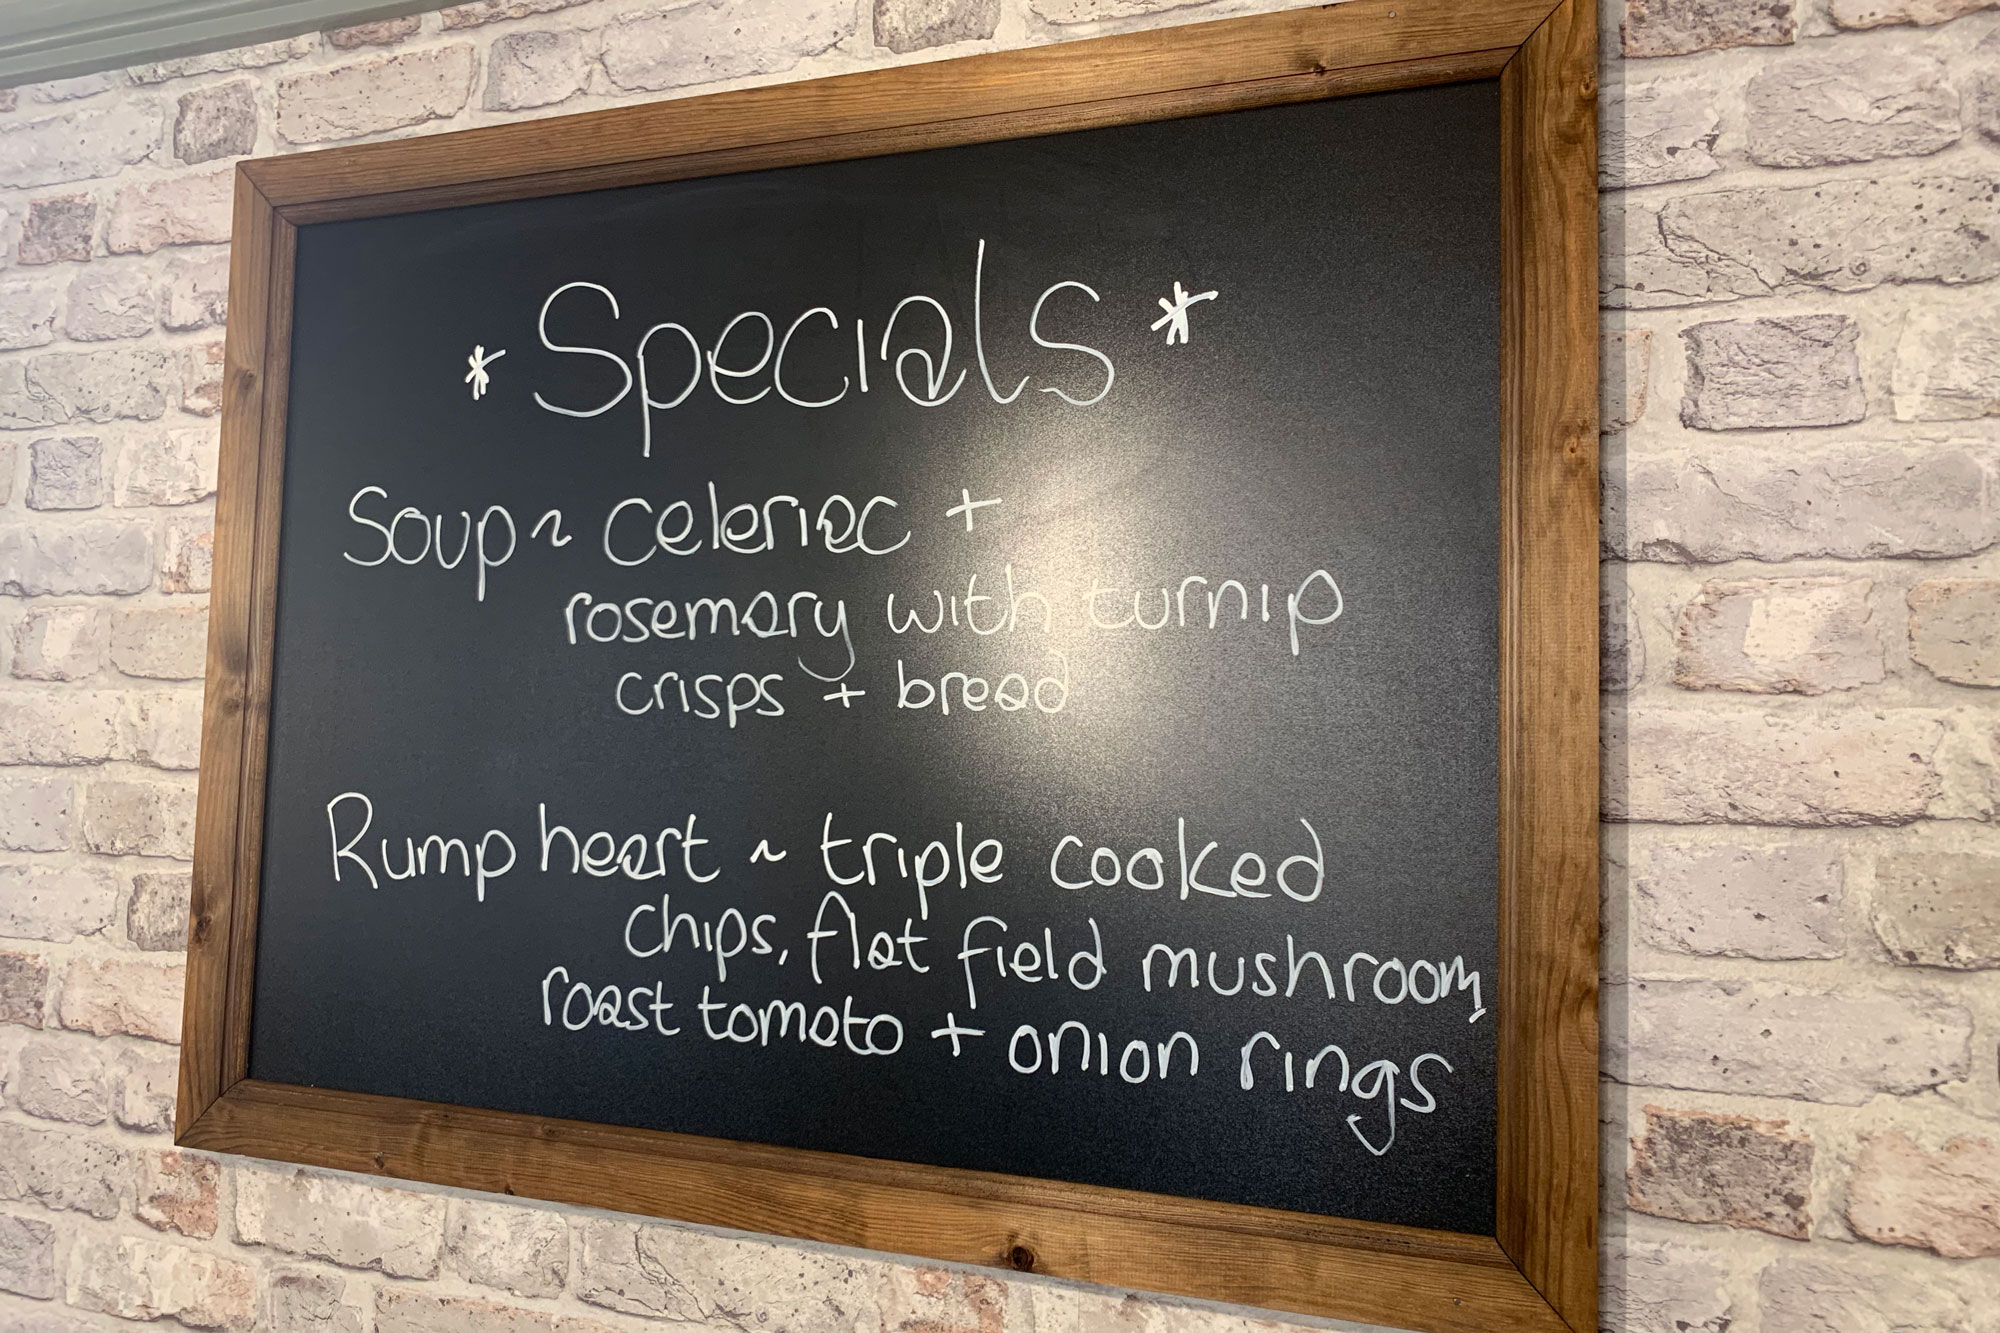 * Specials *
Soup ~ Celeriac +
rosemary with turnip
crisps + bread
Rump heart ~ triple cooked
chips, flat field mushroom,
roast tomato + onion rings